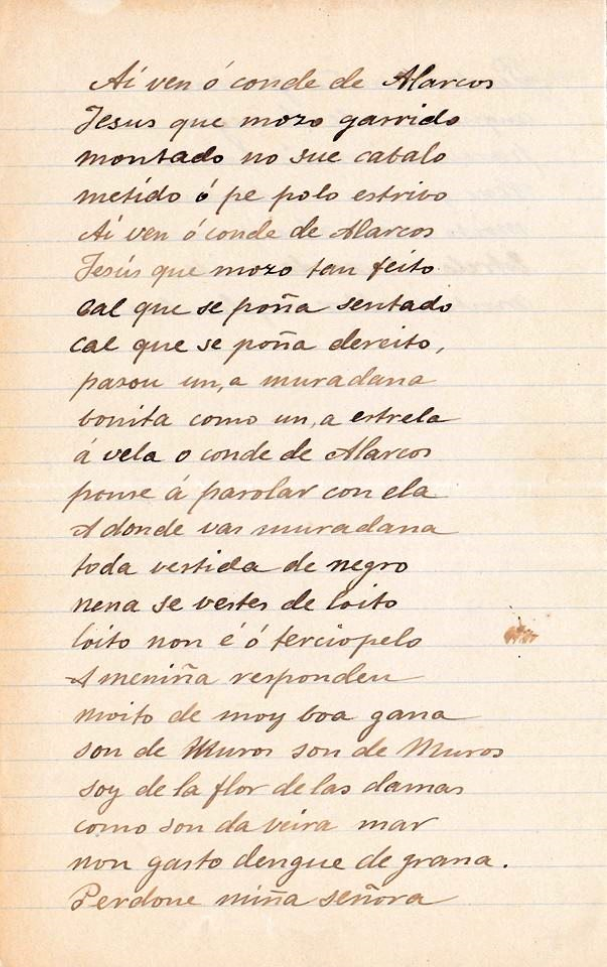 Aí ven ó conde de Alarcos
Jesus que mozo garrido
montado no sue cabalo
metido ó pe polo estrivo
Aí ven ó conde de Alarcos
Jesús que mozo tan feito
cal que se poña sentado
cal que se poña dereito,
pasou un,a muradana
bonita como un,a estrela
á vela o conde de Alarcos
ponse á parolar con ela
A donde vas muradana
toda vestida de negro
nena se vestes de loito
loito non é ó terciopelo
A meniña respondeu
moito de moy boa gana
son de Muros son de Muros
soy de la flor de las damas
como son da veira mar
non gasto dengue de grana.
Perdone miña señora